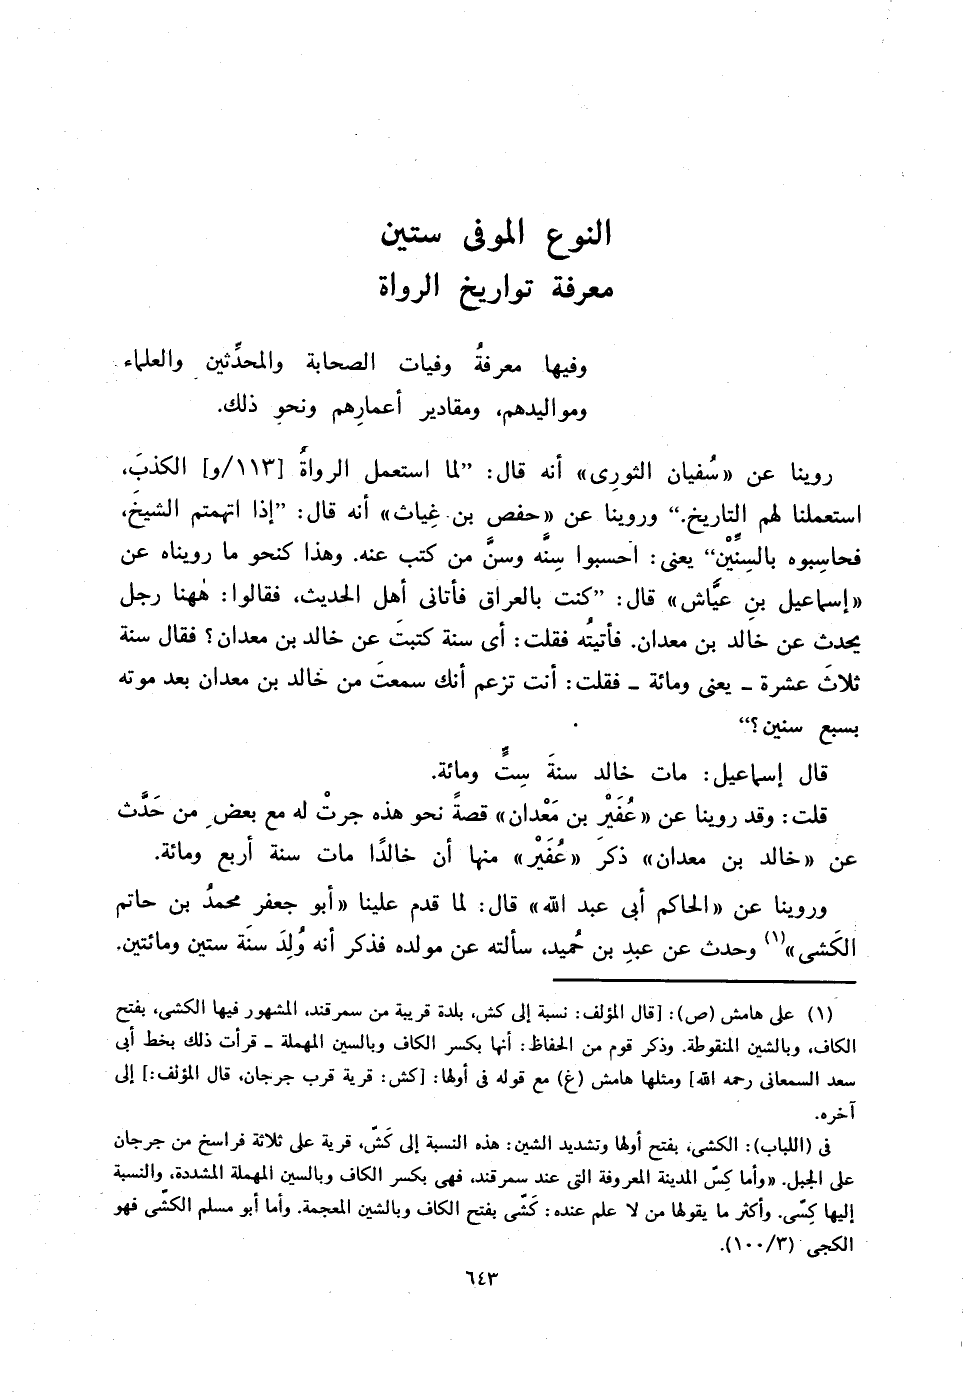 النوع الموفى ستين
معرفة تواريخ الرواة
وفيها معرفةُ وفيات الصحابة والمحدِّثين والعلماء
ومواليدهم، ومقادير أعمارِهم ونحوِ ذلك.
روينا عن «سُفيان الثورِى» أنه قال: ”لما استعمل الرواةُ [١١٣/و] الكذبَ،
استعملنا لهم التاريخ.“ وروينا عن «حفص بن غِياث» أنه قال: ”إذا اتهمتم الشيخَ،
فحاسِبوه بالسِنِّيْن“ يعنى: احسبوا سِنَّه وسنَّ من كتب عنه. وهذا كنحو ما رويناه عن
«إسماعيل بنِ عيَّاش» قال: ”كنت بالعراق فأتانى أهل الحديث، فقالوا: هٰهنا رجل
يحدث عن خالد بن معدان. فأتيتُه فقلت: أى سنة كتبتَ عن خالد بن معدان؟ فقال سنة
ثلاثَ عشرة ـ يعنى ومائة ـ فقلت: أنت تزعم أنك سمعتَ من خالد بن معدان بعد موته
بسبع سنين؟“
قال إسماعيل: مات خالد سنةَ سِتٍّ ومائة.
قلت: وقد روينا عن «عُفَيْر بن مَعْدان» قصةً نحو هذه جرتْ له مع بعض من حَدَّث
عن «خالد بن معدان» ذكرَ «عُفَيْر» منها أن خالدًا مات سنة أربع ومائة.
وروينا عن «الحاكم أبى عبد الله» قال: لما قدم علينا «أبو جعفر محمدُ بن حاتم
الكَشى»(١) وحدث عن عبدِ بن حُميد، سألته عن مولده فذكر أنه وُلِدَ سنَة ستين ومائتين.
(١) على هامش (ص): [قال المؤلف: نسبة إلى كش، بلدة قريبة من سمرقند، المشهور فيها الكشى، بفتح
الكاف، وبالشين المنقوطة. وذكر قوم من الحفاظ: أنها بكسر الكاف وبالسين المهملة ـ قرأت ذلك بخط أبى
سعد السمعانى رحمه الله] ومثلها هامش (غ) مع قوله فى أولها: [كش: قرية قرب جرجان، قال المؤلف:] إلى
آخره.
فى (اللباب): الكشى، بفتح أولها وتشديد الشين: هذه النسبة إلى كَشّ، قرية على ثلاثة فراسخ من جرجان
على الجبل. «وأما كِسّ المدينة المعروفة التى عند سمرقند، فهى بكسر الكاف وبالسين المهملة المشددة، والنسبة
إليها كِسّى. وأكثر ما يقولها من لا علم عنده: كَشّى بفتح الكاف وبالشين المعجمة. وأما أبو مسلم الكشّى فهو
الكجى (١٠٠/٣).
٦٤٣